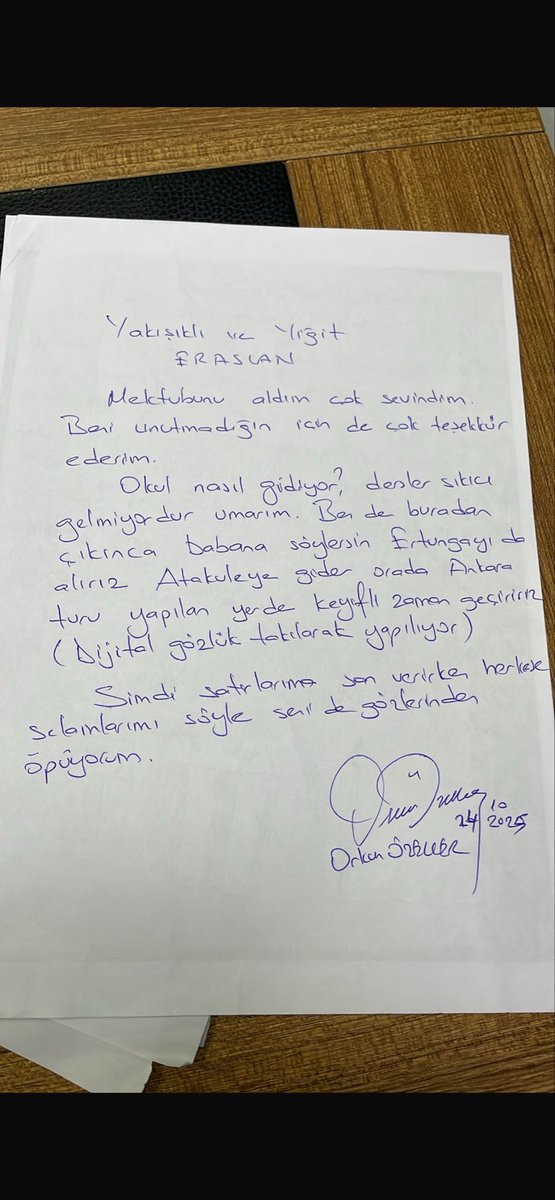 Yakışıklı ve Yiğit
ERASLAN
Mektubunu aldım çok sevindim.
Beni unutmadığın için de çok teşekkür
ederim.
Okul nasıl gidiyor? dersler sıkıcı
gelmiyordur umarım. Ben de buradan
çıkınca babana söylersin Ertungayı da
alırız Atakuleye gider orada Ankara
turu yapılan yerde keyifli zaman geçiririz
(Dijital gözlük takılarak yapılıyor)
Şimdi satırlarıma son verirken herkese
selamlarımı söyle seni de gözlerinden
öpüyorum.
24/10
2025
Orkun ÖZELLER